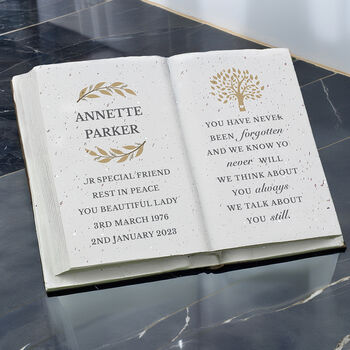 ANNETTE
PARKER
JR SPECIAL FRIEND
REST IN PEACE
YOU BEAUTIFUL LADY
3RD MARCH 1976
2ND JANUARY 2023
YOU HAVE NEVER
BEEN forgotten
AND WE KNOW YO
never WILL
WE THINK ABOUT
YOU always
WE TALK ABOUT
YOU still.